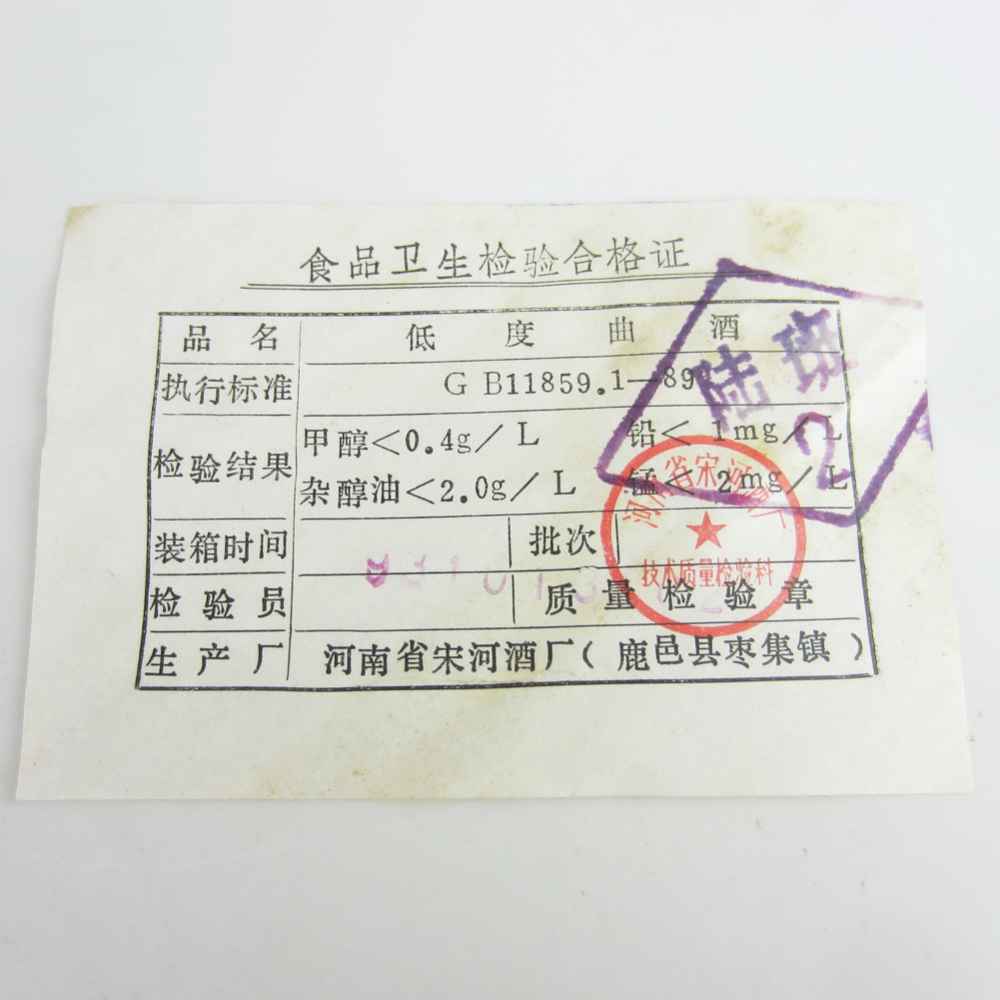 食品卫生检验合格证
品名 低度曲酒
执行标准 GB11859.1—89
检验结果 甲醇<0.4g/L 铅<1mg/L
杂醇油<2.0g/L 锰<2mg/L
装箱时间 批次
检验员 质量检验章
生产厂 河南省宋河酒厂(鹿邑县枣集镇)
陆班
2
河南省宋河酒厂
技术质量检验科